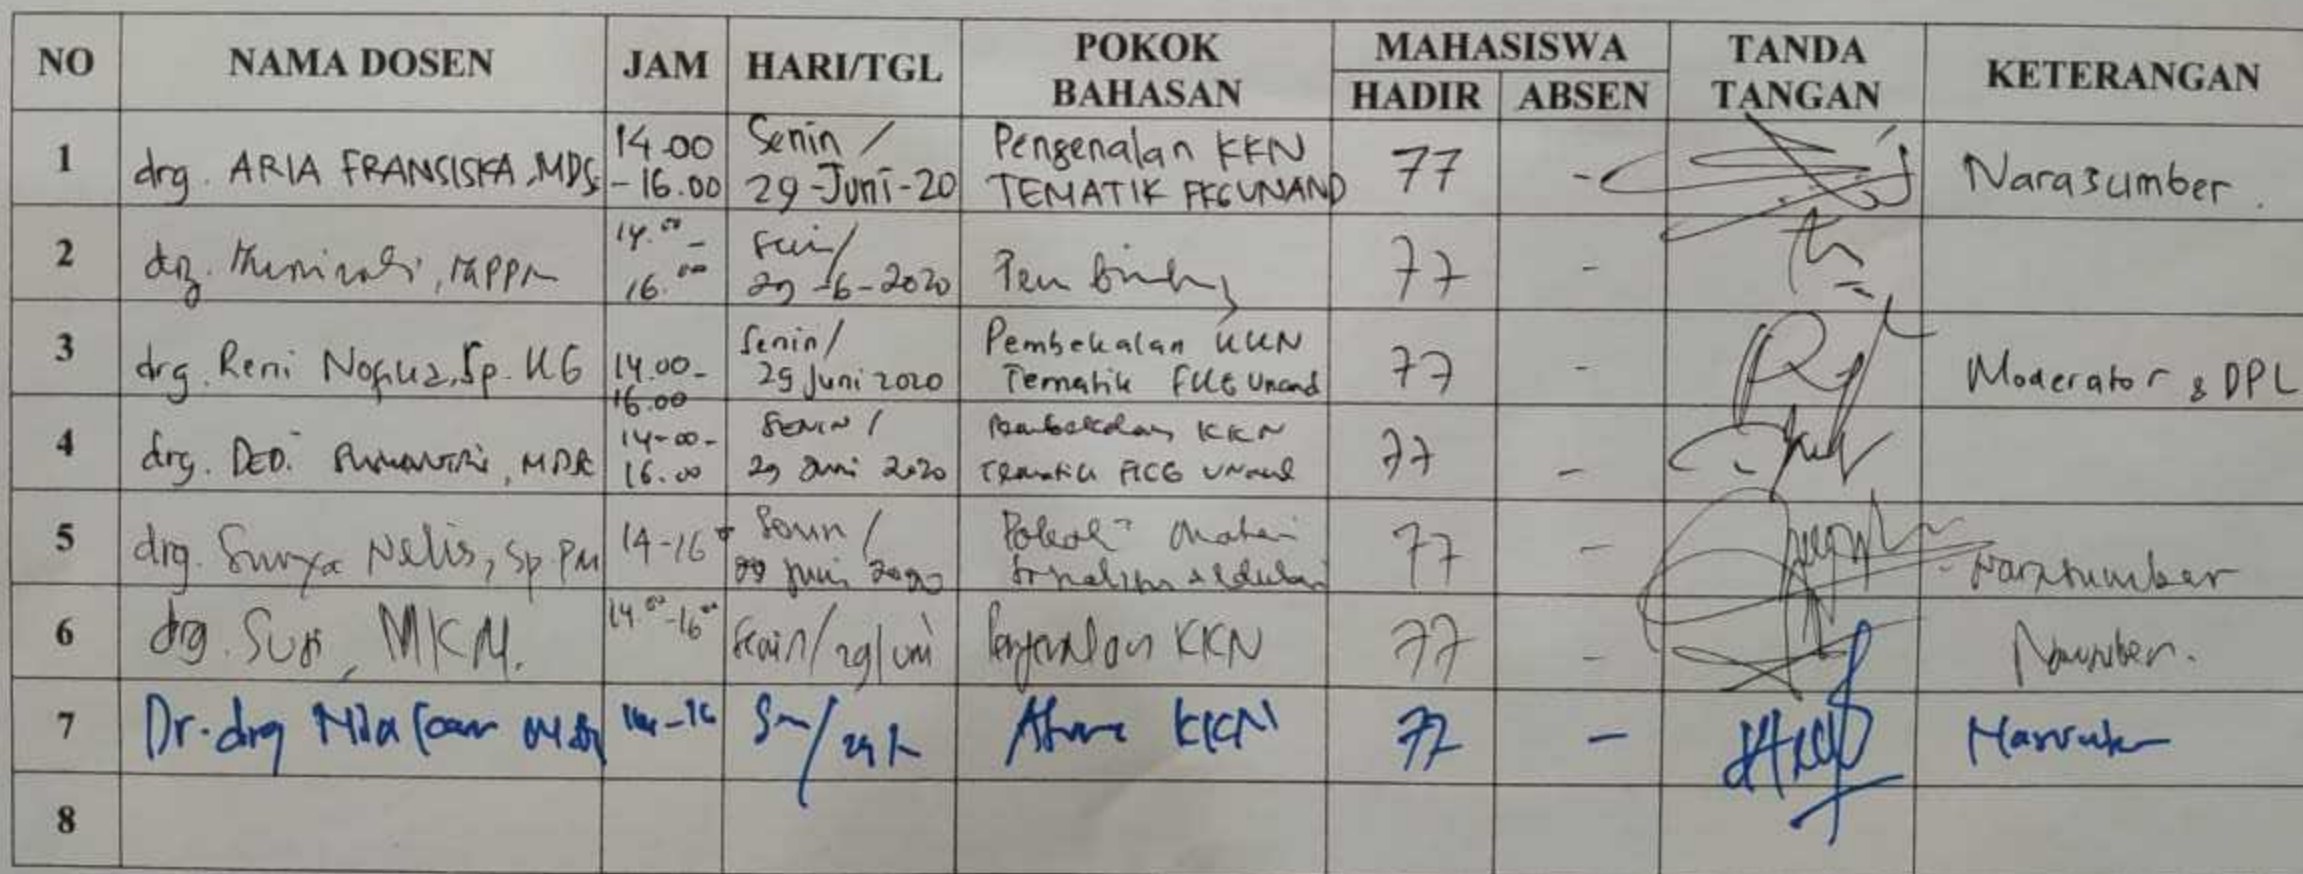 NO NAMA DOSEN JAM HARI/TGL POKOK BAHASAN MAHASISWA TANDA TANGAN KETERANGAN
HADIR ABSEN
1 drg. ARIA FRANSISKA, MDSc 14.00 - 16.00 Senin / 29-Juni-20 Pengenalan KKN TEMATIK FKG UNAND 77 - Narasumber.
2 drg. 14.00 - 16.00 29-6-2020 77 -
3 drg. Reni Nofika, Sp. KG 14.00 - 16.00 Senin / 29 Juni 2020 Pembekalan KKN Tematik FKG Unand 77 - Moderator & DPL
4 drg. DEDI SUMANTRI, MDSc 14-00 - 16.00 SENIN / 29 Juni 2020 Pembekalan KKN Tematik FKG Unand 77 -
5 drg. Surya Nelis, Sp.PM 14-16 Senin / 29 Juni 2020 77 - Narasumber
6 drg. Susi, MKM. 14.00-16.00 Senin/29 Juni Pengenalan KKN 77 -
7 Dr. drg 14-16 KKN 77 -
8